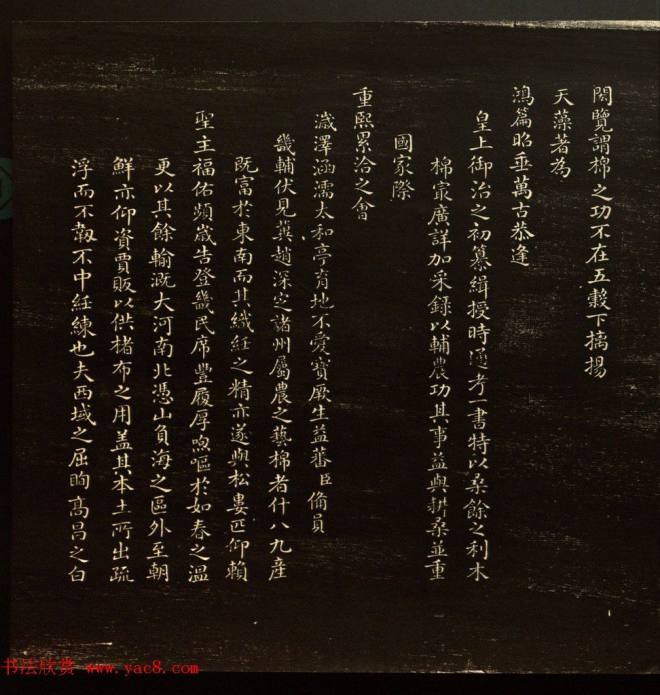 閱覽謂棉之功不在五穀下摛揚
天藻著為
鴻篇昭垂萬古恭逢
皇上御治之初纂緝授時通考一書特以桑餘之利木
棉㝡廣詳加采錄以輔農功其事益與耕桑並重
國家際
重熙累洽之會
濊澤涵濡太和亭育地不愛寶厥生益蕃臣備員
畿輔伏見冀趙深定諸州屬農之藝棉者什八九產
既富於東南而其織紝之精亦遂與松婁匹仰賴
聖主福佑頻歲告登畿民席豐履厚喣嘔於如春之溫
更以其餘輸溉大河南北憑山負海之區外至朝
鮮亦仰資賈販以供楮布之用盖其本土所出疏
浮而不韌不中紝練也夫西域之屈眴高昌之白
书法欣赏 www.yac8.com